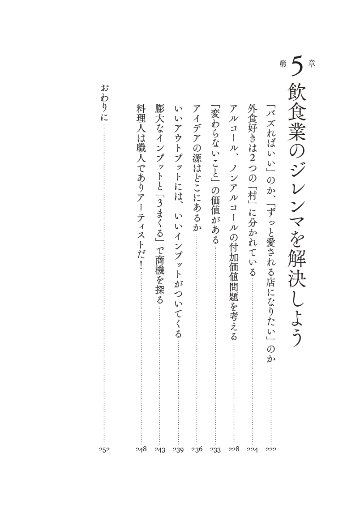 第5章 飲食業のジレンマを解決しよう
「バズればいい」のか、「ずっと愛される店になりたい」のか 222
外食好きは2つの「村」に分かれている 224
アルコール、ノンアルコールの付加価値問題を考える 228
「変わらないこと」の価値がある 233
アイデアの源はどこにあるか 236
いいアウトプットには、いいインプットがついてくる 239
膨大なインプットと「3まくる」で商機を探る 243
料理人は職人でありアーティストだ! 248
おわりに 252